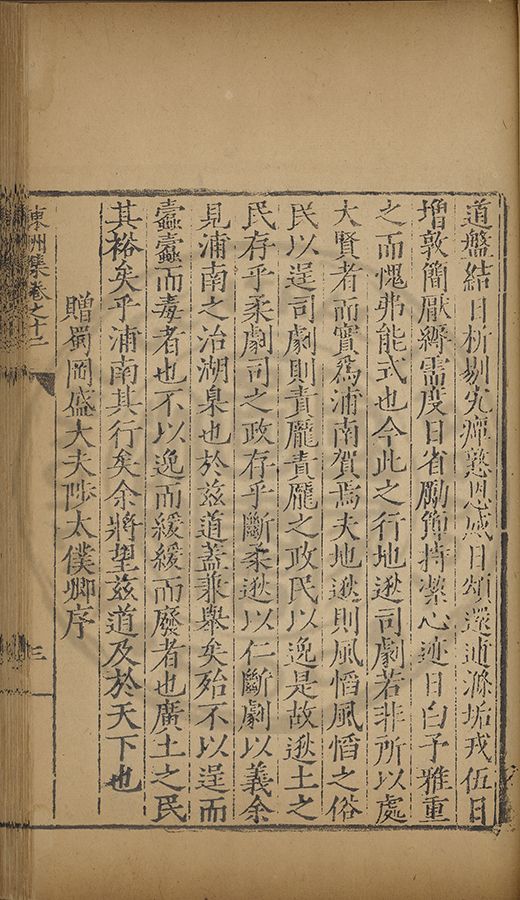 道盤結日析剔宄癉慝恩威日頌還逋滌垢戎伍日
增敦簡厭縟需度日省勵節持潔心迹日白予雅重
之而愧弗能式也今此之行地逖司劇若非所以處
大賢者而實為浦南賀焉夫地逖則風慆風慆之俗
民以逞司劇則責龐責龐之政民以逸是故逖土之
民存乎柔劇司之政存乎斷柔逖以仁斷劇以義余
見浦南之治湖臬也於茲道蓋兼舉矣殆不以逞而
蠹蠹而毒者也不以逸而緩緩而廢者也廣土之民
其裕矣乎浦南其行矣余將望茲道及於天下也
贈蜀岡盛大夫陟太僕卿序
東洲集卷之十二
三